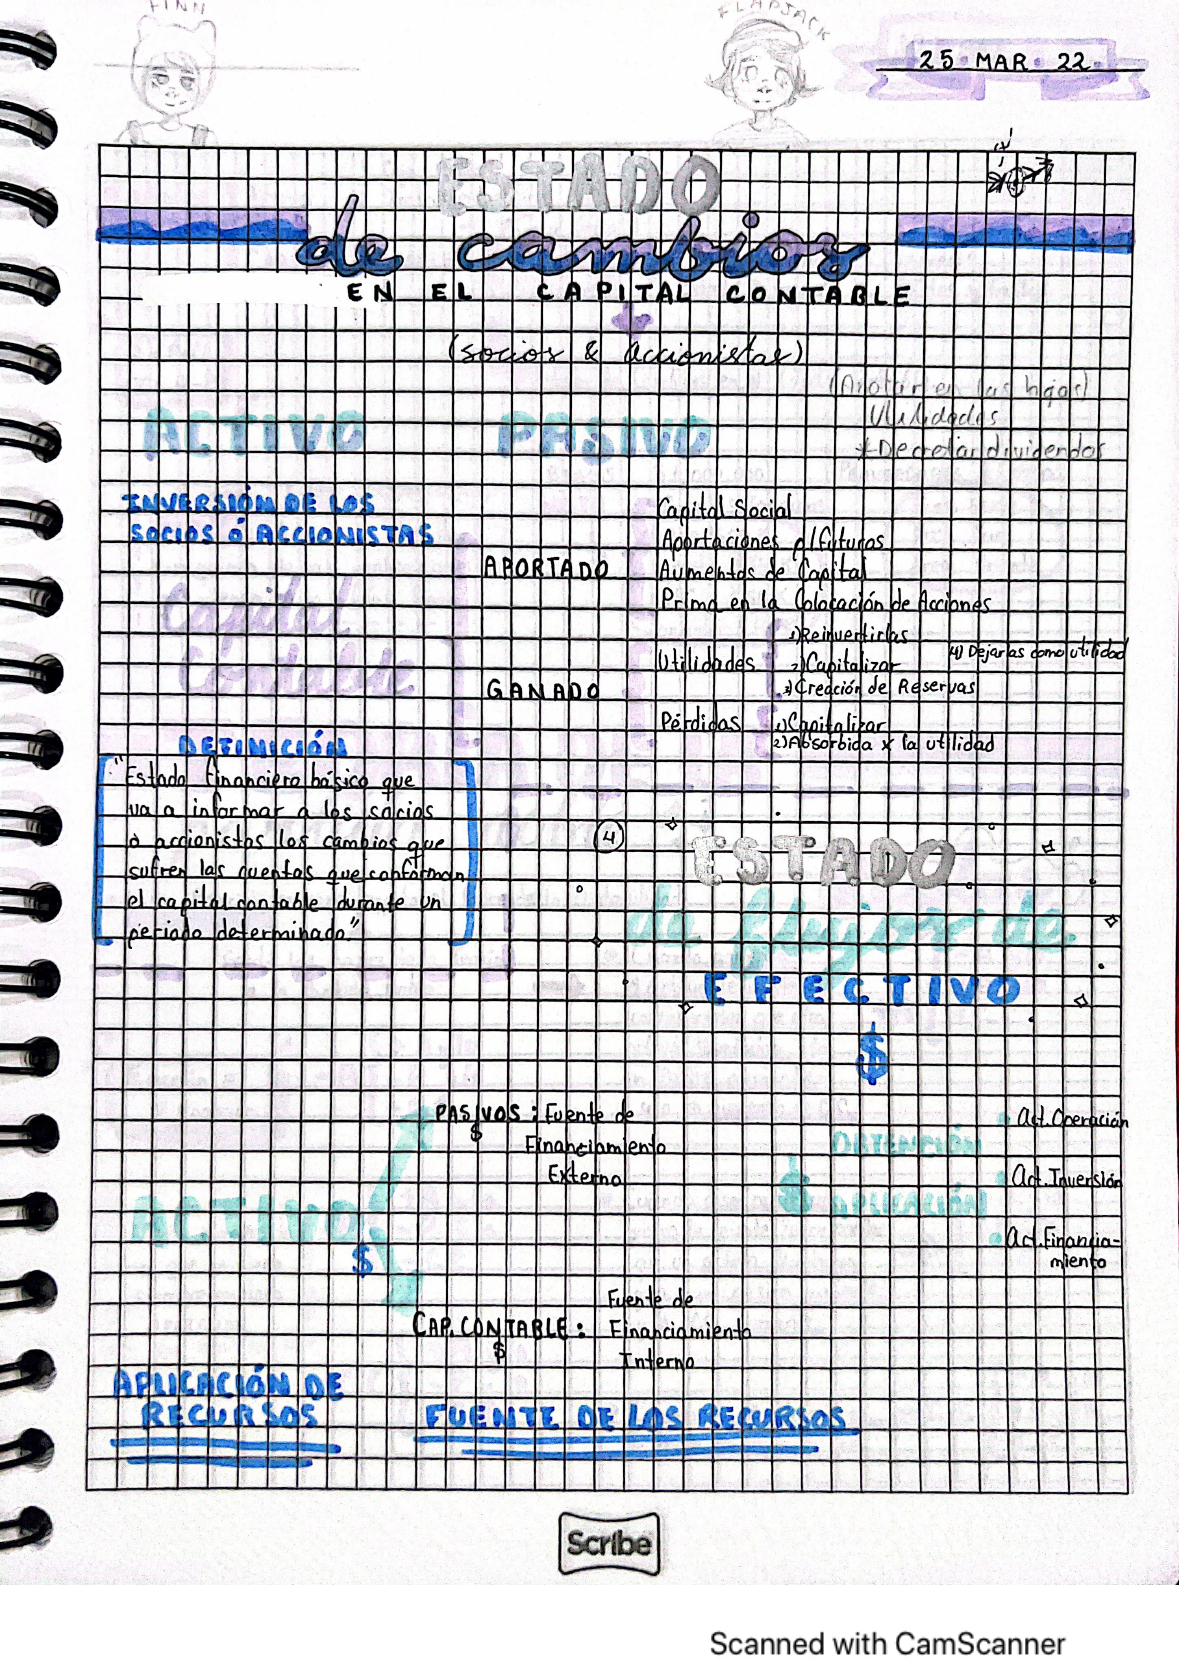 FINN
FLAPJACK
25 MAR 22
ESTADO
de cambios
EN EL CAPITAL CONTABLE
(socios & accionistas)
(Anotar en las hojas)
Utilidades
*Decretar dividendos
ACTIVO PASIVO
INVERSIÓN DE LOS
SOCIOS ó ACCIONISTAS
Capital
Contable
APORTADO
Capital Social
Aportaciones p/futuros
Aumentos de Capital
Prima en la Colocación de Acciones
GANADO
Utilidades
1)Reinvertirlas
2)Capitalizar
3)Creación de Reservas
4) Dejarlas como utilidad
Pérdidas
1)Capitalizar
2)Absorbida x la utilidad
DEFINICIÓN
"Estado financiero básico que
va a informar a los socios
o accionistas los cambios que
sufren las cuentas que conforman
el capital contable durante un
periodo determinado"
4
ESTADO
de flujos de
EFECTIVO
$
ACTIVO
$
PASIVOS: Fuente de
$
Financiamiento
Externo
CAP. CONTABLE:
$
Fuente de
Financiamiento
Interno
OBTENCIÓN
$
APLICACIÓN
Act. Operación
Act. Inversión
Act. Financia-
miento
APLICACIÓN DE
RECURSOS
FUENTE DE LOS RECURSOS
Scribe
Scanned with CamScanner